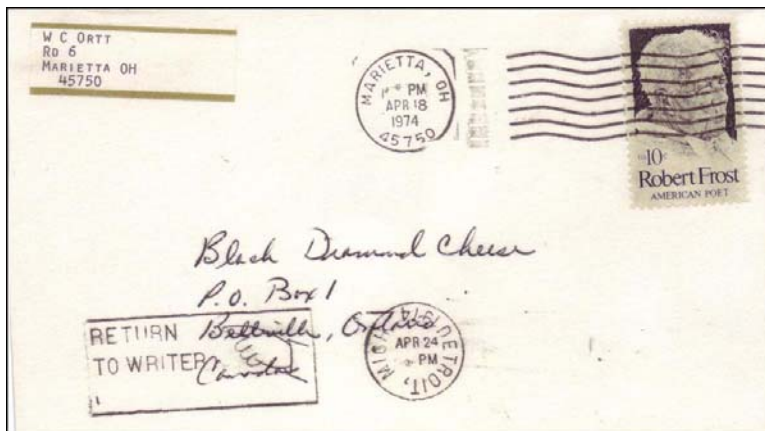 W C ORTT
RD 6
MARIETTA OH
45750
MARIETTA, OH
PM
APR 18
1974
45750
10c
Robert Frost
AMERICAN POET
Black Diamond Cheese
P.O. Box 1
Belleville, Ontario
Canada
RETURN
TO WRITER
DETROIT, MICH
1974
APR 24
PM